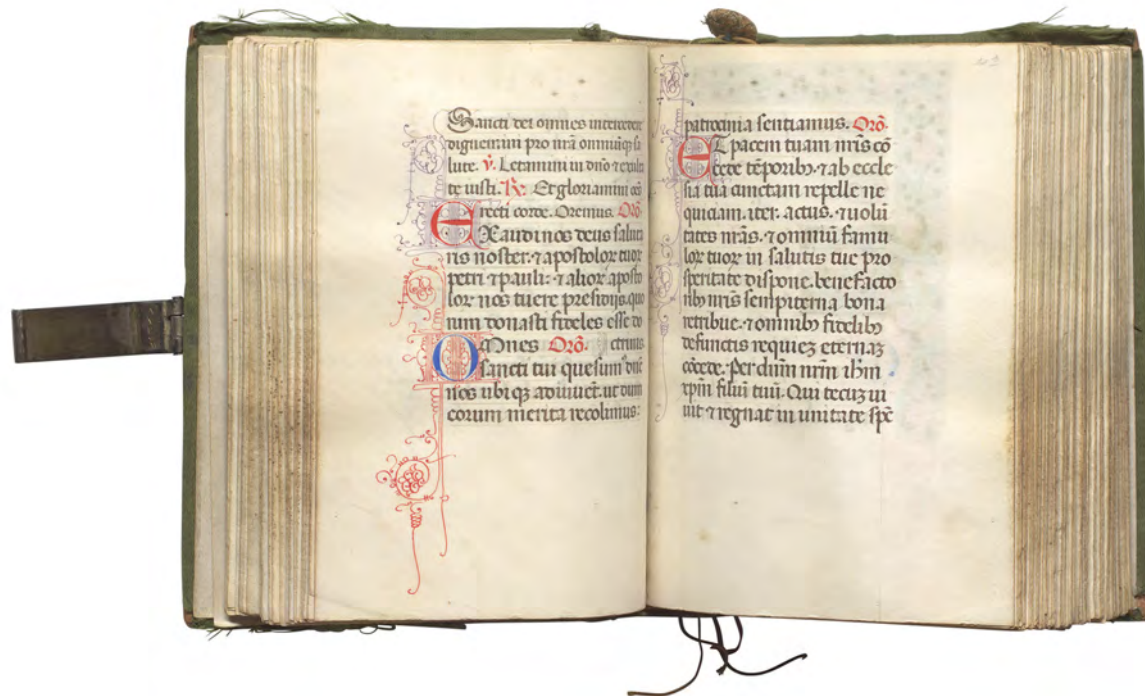 Sancti dei omnes interceder
dignemini pro nrā omniūqʒ sa
lute. v̄. Letamini in dn̄o ⁊ exulta
te iusti. R̄: Et gloriamini oēs
recti corde. Oremus. Orō
EXaudi nos deus saluta
ris noster. ⁊ apostolor tuor
petri ⁊ pauli: ⁊ alior aposto
lor nos tuere presidijs. quo
rum donasti fideles esse do
OMnes Orō. ctrinis
sancti tui quesumꝰ dn̄e
nos ubiqʒ adiuuēt. ut dum
eorum merita recolimus:
patrocinia sentiamus. Orō.
ET pacem tuam nr̄is cō
cede tēporibʒ. ⁊ ab eccle
sia tua cunctam repelle ne
quiciam. iter. actus. ⁊ uolū
tates nr̄as. ⁊ omniū famu
lor tuor in salutis tue pro
speritate dispone. benefacto
ribʒ nr̄is sempiterna bona
retribue. ⁊ omnibʒ fidelibʒ
defunctis requieʒ eternaʒ
cōcede. Per dn̄um nr̄m ihm̄
xpm̄ filiuʒ tuū. Qui tecuʒ ui
uit ⁊ regnat in unitate spē